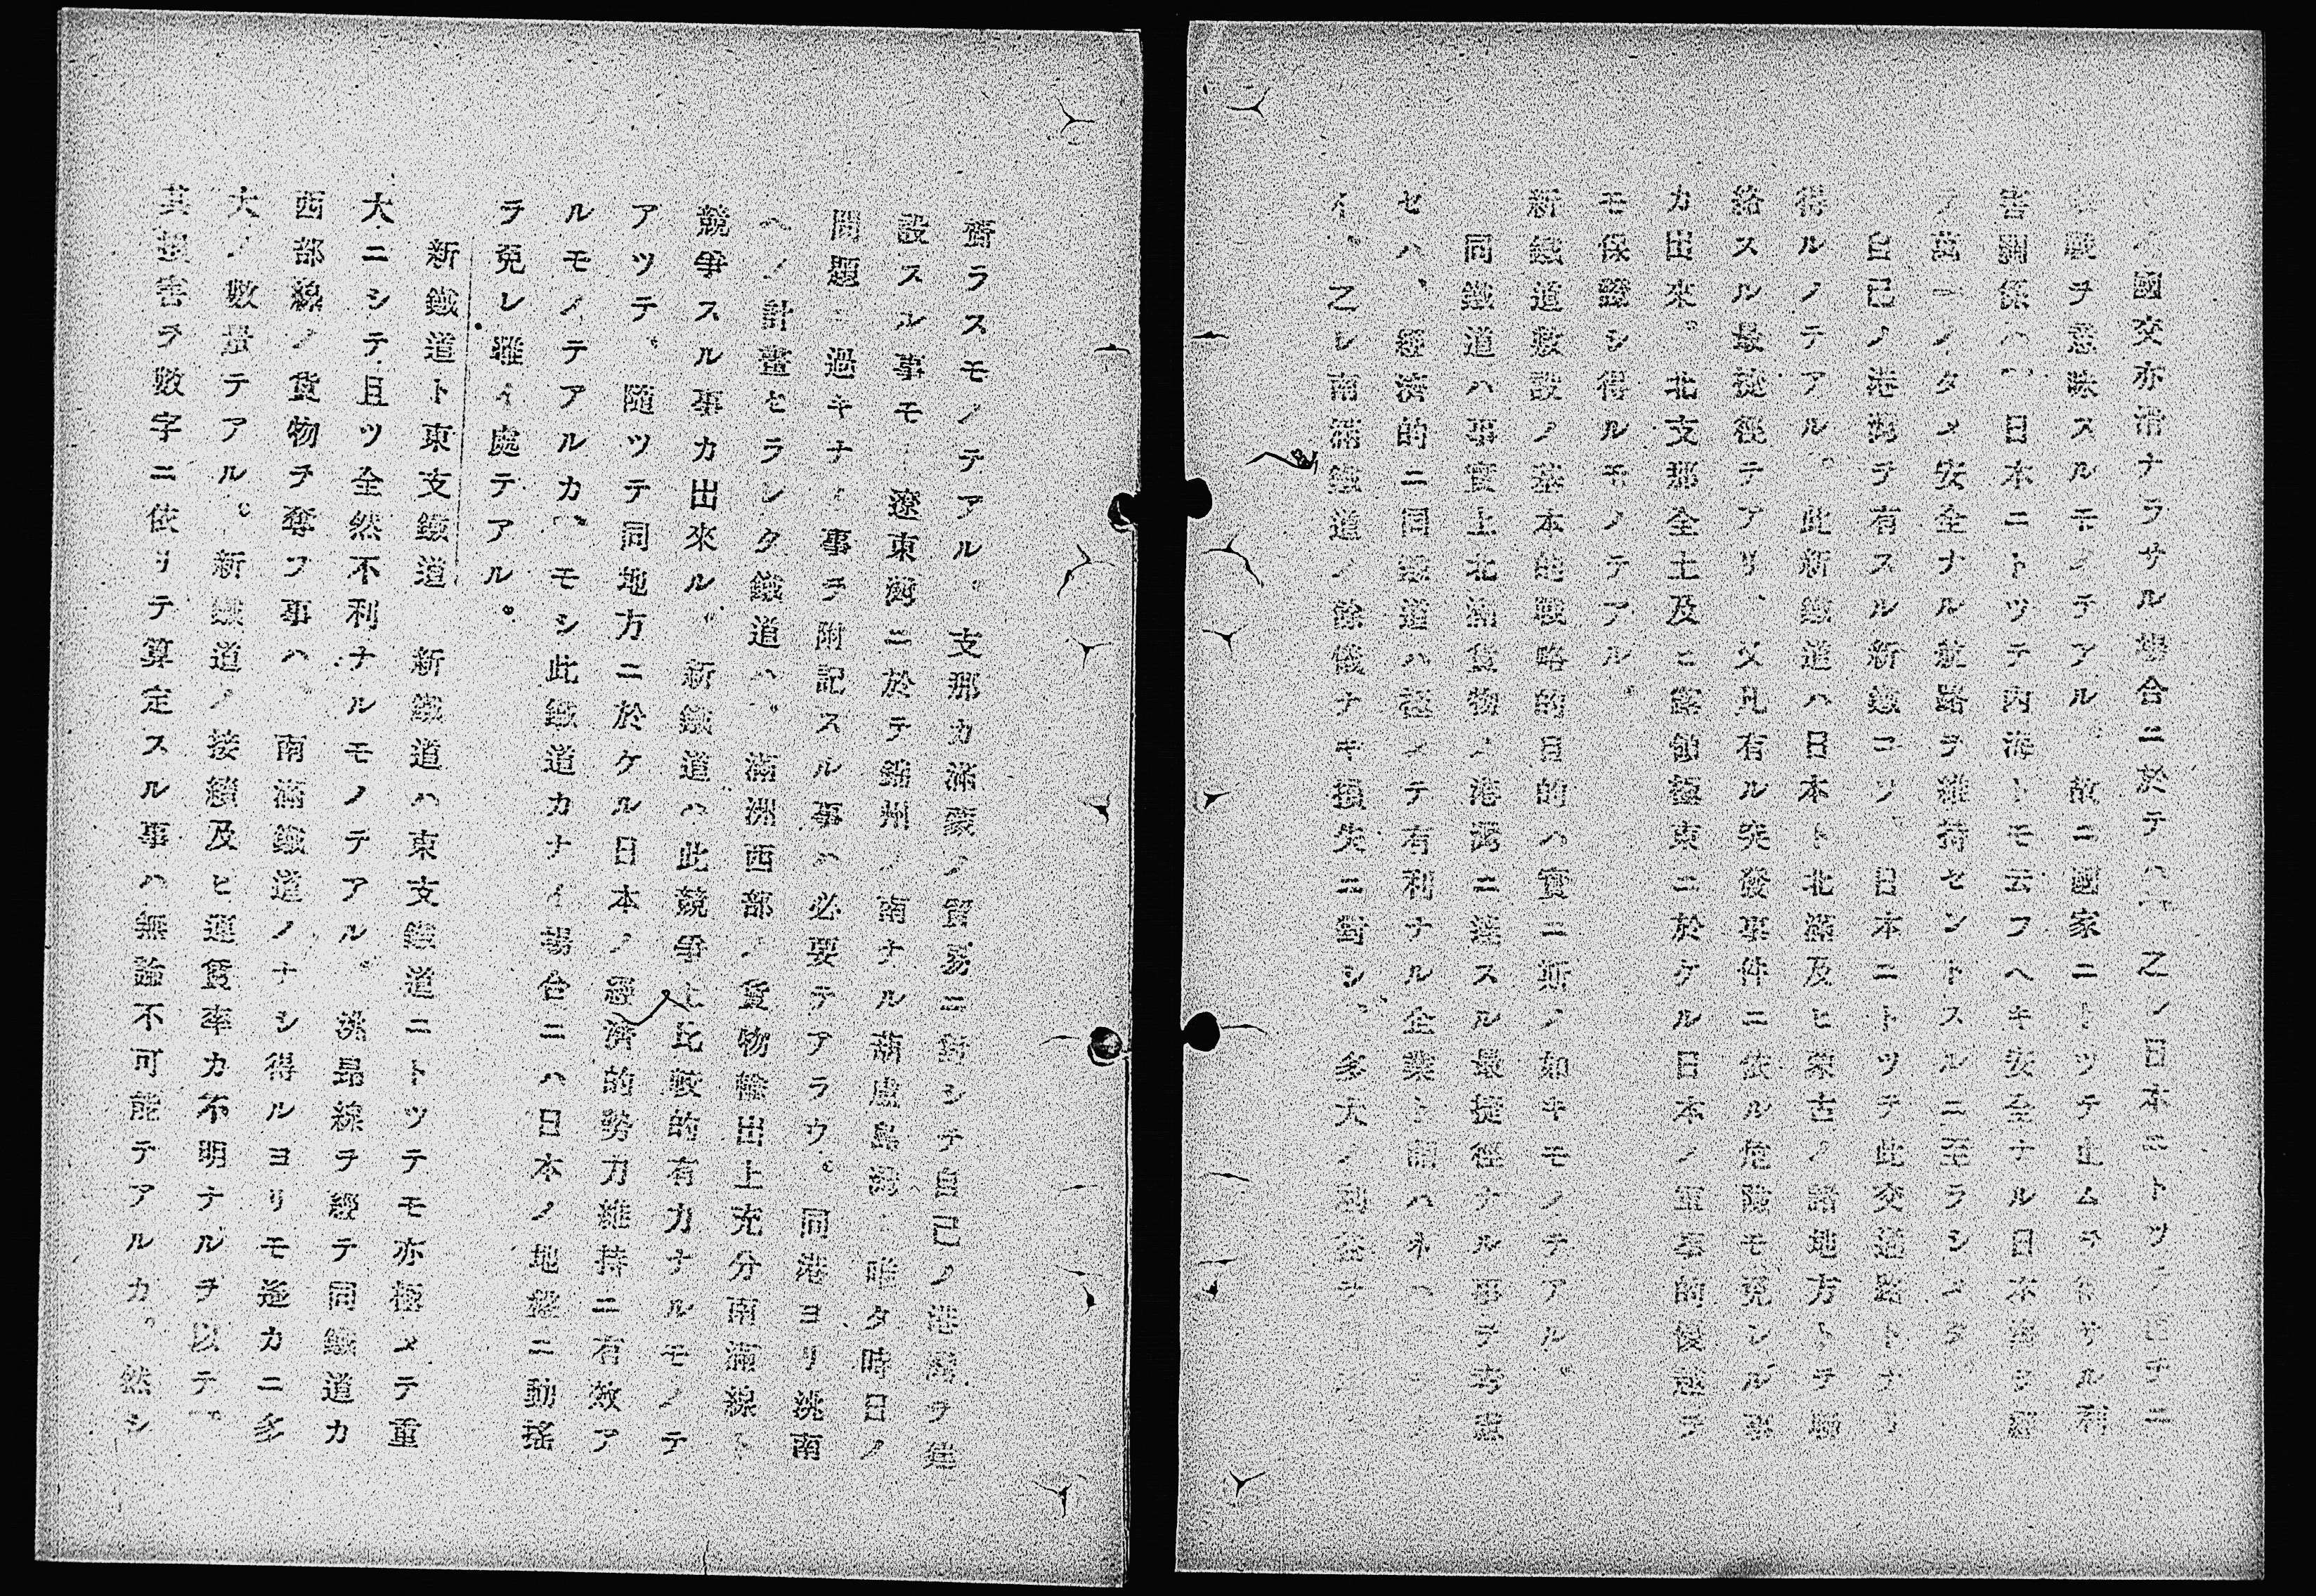 國交亦淸ナラサル場合ニ於テハ、之レ日本ニトツテ直チニ
戰ヲ意味スルモノテアル。故ニ國家ニトツテ止ムヲ得サル利
害關係ハ、日本ニトツテ內海トモ云フヘキ安全ナル日本海ヲ經
テ萬一ノタメ安全ナル航路ヲ維持セントスルニ至ラシメタ
自己ノ港灣ヲ有スル新鐵コソ、日本ニトツテ此交通路トナリ
得ルノテアル。此新鐵道ハ日本ト北滿及ヒ蒙古ノ諸地方トヲ聯
絡スル最捷徑テアリ、又凡有ル突發事件ニ依ル危險モ免レル事
カ出來。北支那全土及ヒ露領極東ニ於ケル日本ノ軍事的優越ヲ
モ保證シ得ルモノテアル。
新鐵道敷設ノ基本的戰略的目的ハ實ニ斯ノ如キモノテアル。
同鐵道ハ事實上北滿貨物ノ港灣ニ達スル最捷徑ナル事ヲ考慮
セハ、經濟的ニ同鐵道ハ極メテ有利ナル企業ト謂ハネハ
イ。之レ南滿鐵道ノ餘儀ナキ損失ニ對シ、多大ノ利益ヲ
齎ラスモノテアル。支那カ滿蒙ノ貿易ニ對シテ自己ノ港灣ヲ建
設スル事モ、遼東灣ニ於テ錦州ノ南ナル葫盧島灣ニ唯タ時日ノ
問題ニ過キナイ事ヲ附記スル事ハ必要テアラウ。同港ヨリ洮南
ヘノ計畫セラレタ鐵道ハ、滿洲西部ノ貨物輸出上充分南滿線ト
競爭スル事カ出來ル。新鐵道ハ此競爭上比較的有力ナルモノテ
アツテ、隨ツテ同地方ニ於ケル日本ノ經濟的勢力維持ニ有效ア
ルモノテアルカ、モシ此鐵道カナイ場合ニハ日本ノ地盤ニ動搖
ヲ免レ難イ處テアル。
新鐵道ト東支鐵道　新鐵道ハ東支鐵道ニトツテモ亦極メテ重
大ニシテ且ツ全然不利ナルモノテアル。洮昂線ヲ經テ同鐵道カ
西部線ノ貨物ヲ奪フ事ハ、南滿鐵道ノナシ得ルヨリモ遙カニ多
大ノ數量テアル。新鐵道ノ接續及ヒ運賃率カ不明ナルヲ以テ、
其損害ヲ數字ニ依リテ算定スル事ハ無論不可能テアルカ。然シ